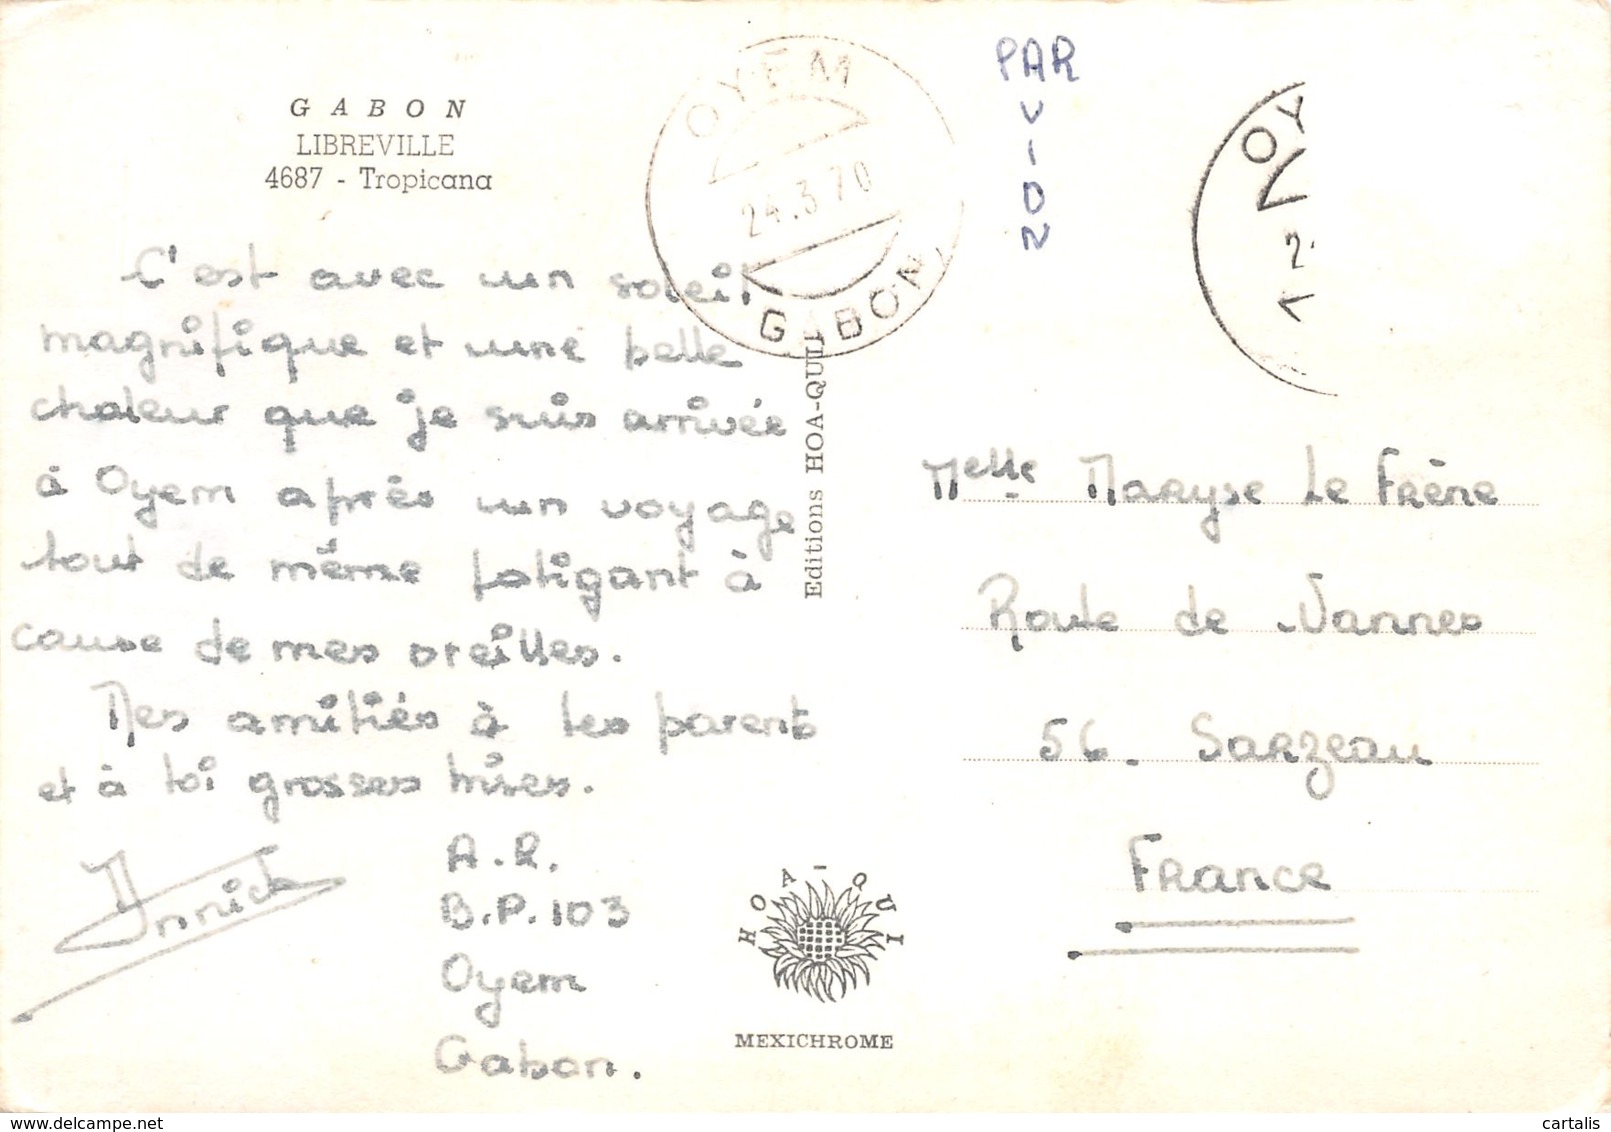 GABON
LIBREVILLE
4687 - Tropicana
C'est avec un soleil
magnifique et une belle
chaleur que je suis arrivée
à Oyem après un voyage
tout de même fatigant à
cause de mes oreilles.
Mes amitiés à tes parents
et à toi grosses bises.
Annick
A.R.
B.P. 103
Oyem
Gabon.
OYEM
24.3.70
GABON
Editions HOA-QUI
HOA-QUI
MEXICHROME
PAR
VION
OY
2
Melle Maryse Le Frène
Route de Vannes
56. Sarzeau
France
delcampe.net
cartalis